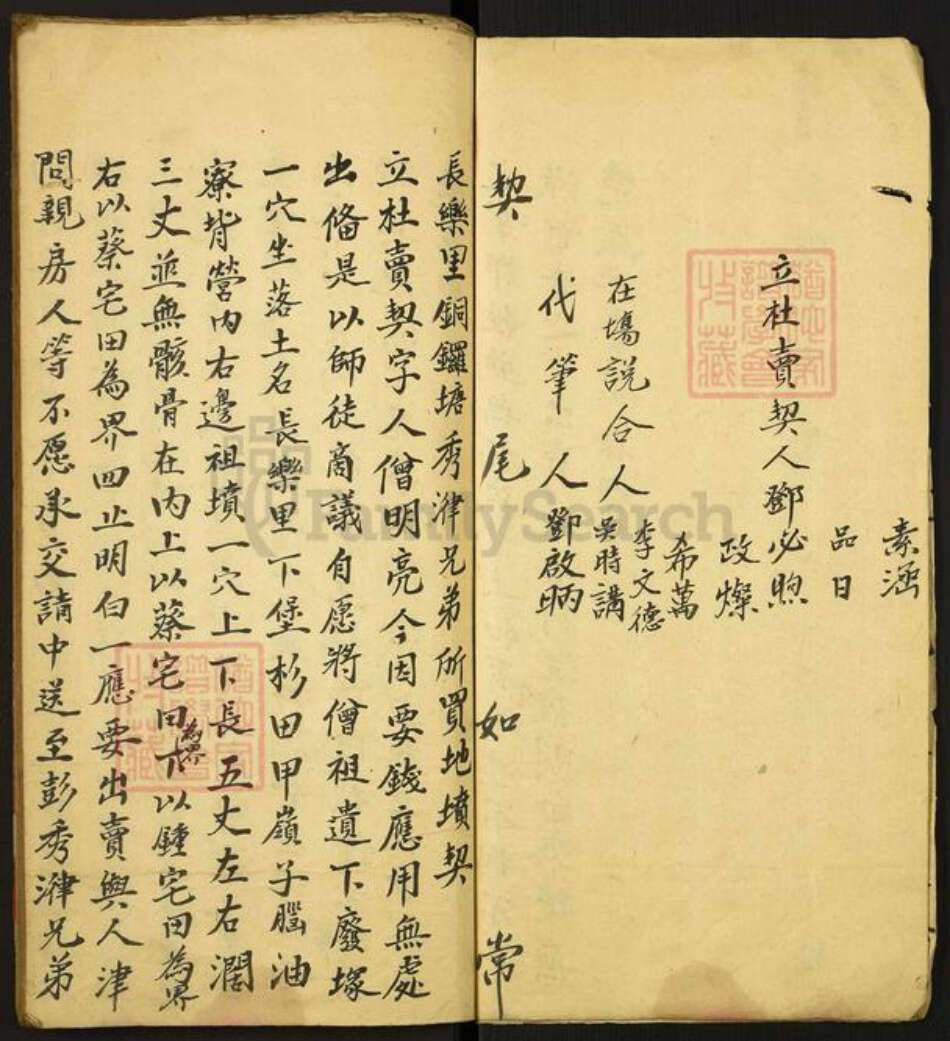 素涵
品日
立杜賣契人鄧必煦
政燦
希萬
在塲説合人李文德
吳時講
代筆人鄧啟昞
契尾如常
長樂里銅鑼塘秀津兄弟所買地墳契
立杜賣契字人僧明亮今因要錢應用無處
出俻是以師徒商議自愿將僧祖遺下廢塚
一穴坐落土名長樂里下堡杉田甲嶺子腦油
寮背營内右邊祖墳一穴上下長五丈左右濶
三丈並無骸骨在内上以蔡宅田為界下以鍾宅田為界
右以蔡宅田為界四止明白一應要出賣與人津
問親房人等不愿承交請中送至彭秀津兄弟
收藏
FamilySearch